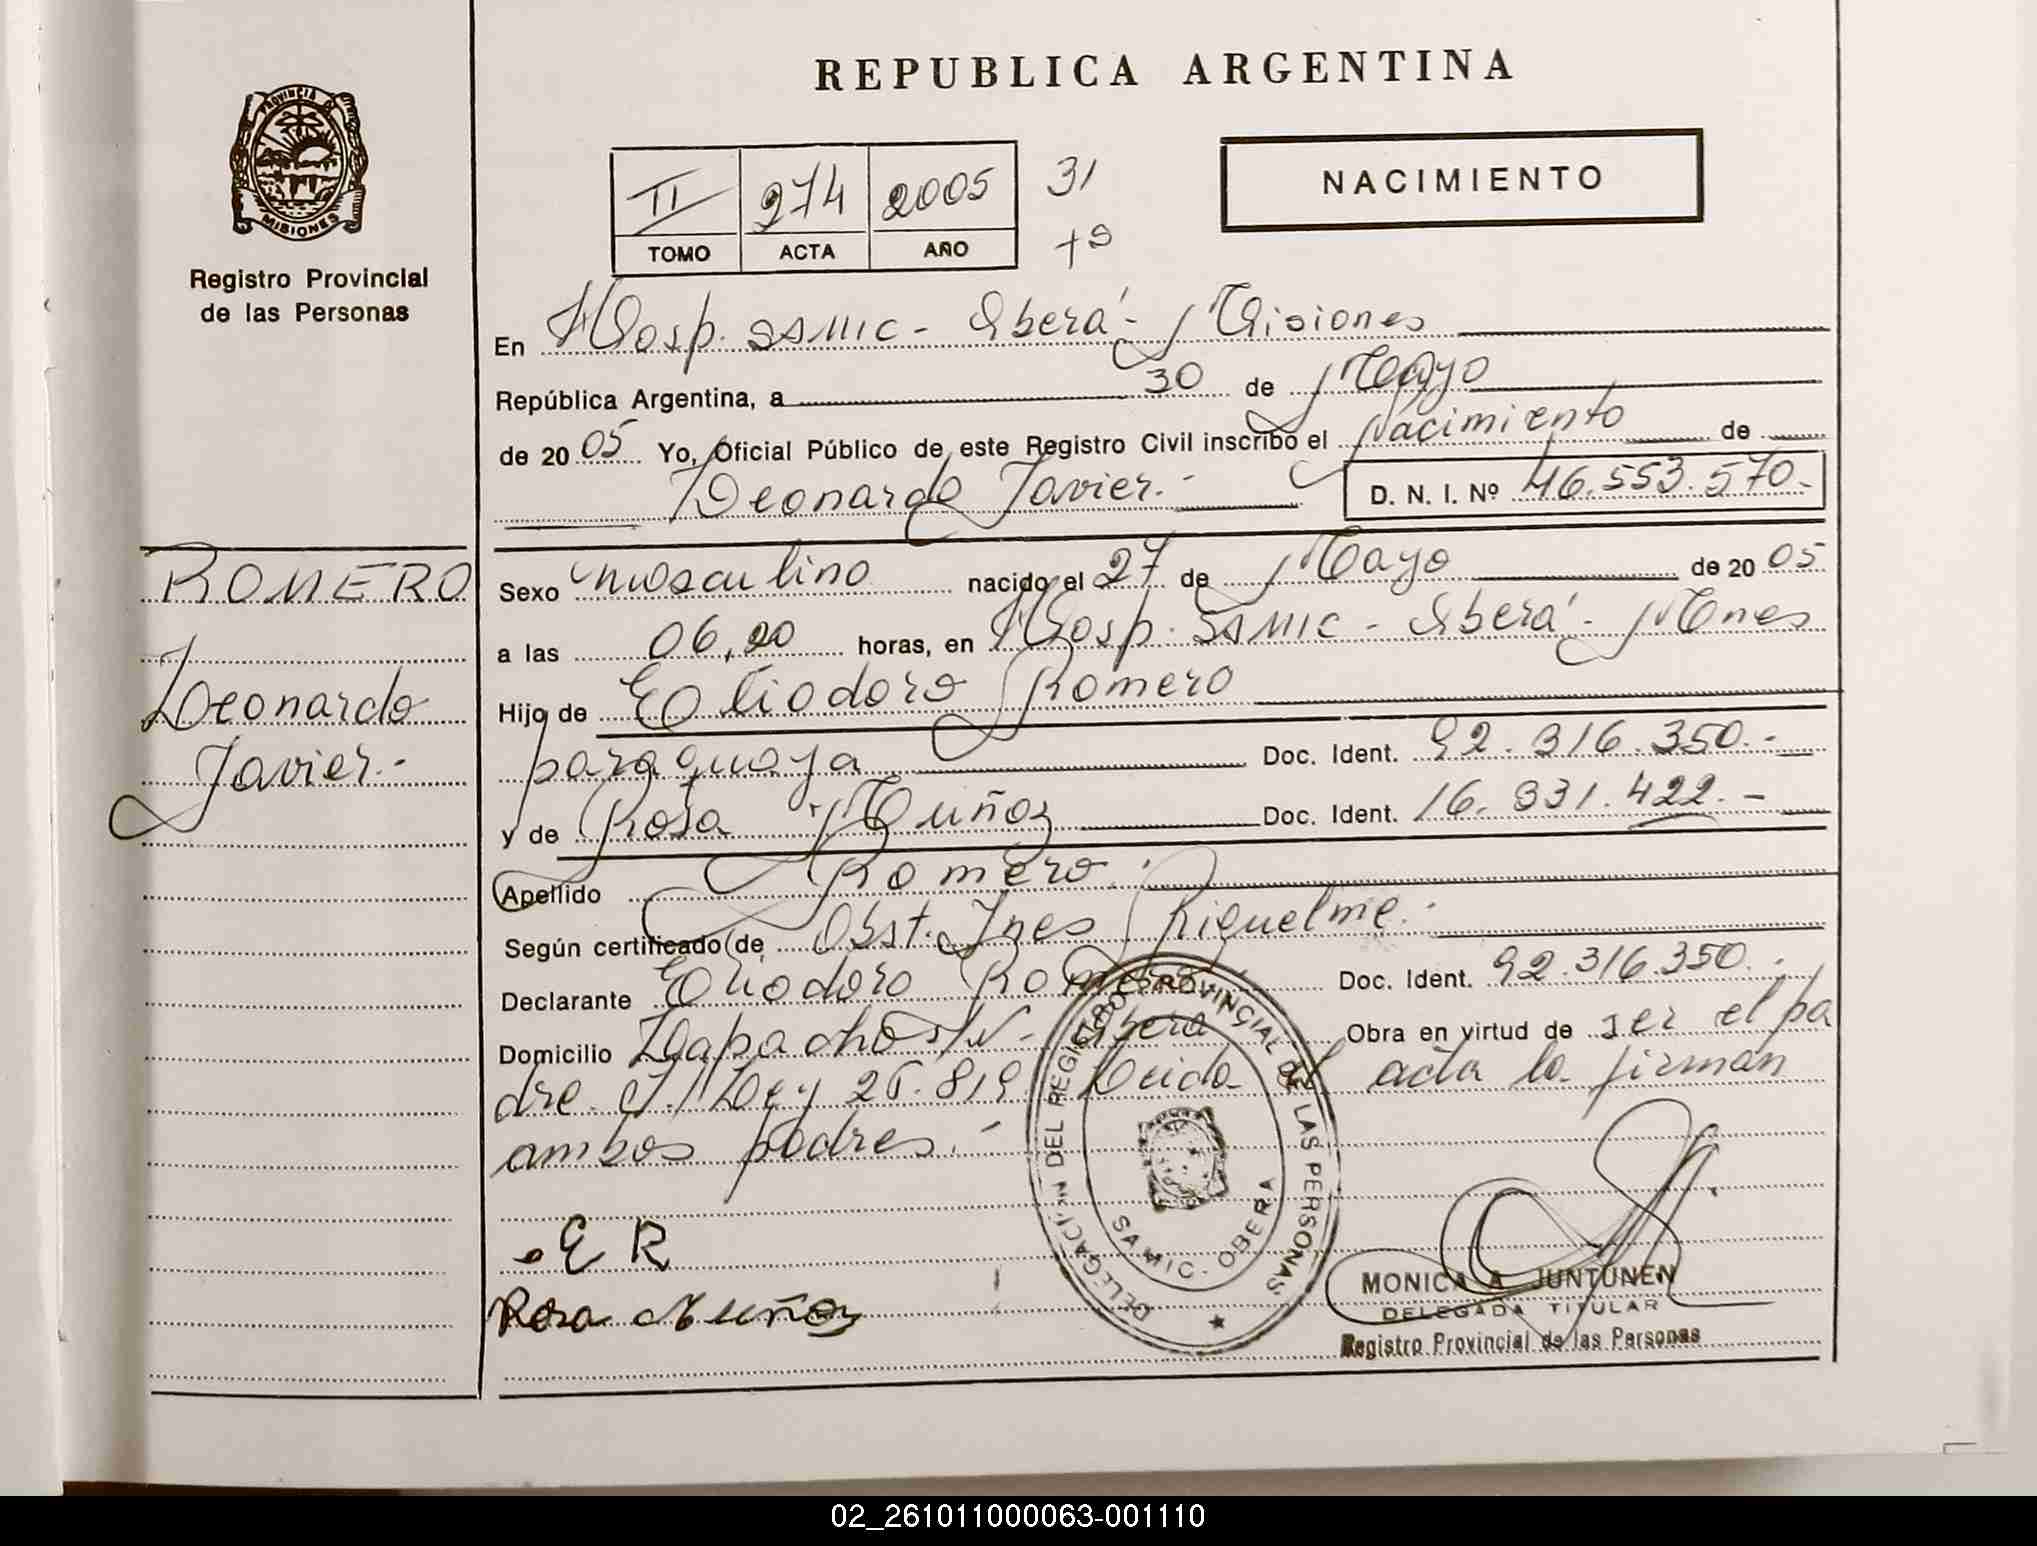 REPUBLICA ARGENTINA
PROVINCIA
MISIONES
Registro Provincial
de las Personas
II 274 2005 31
TOMO ACTA AÑO
NACIMIENTO
En Hosp. SAMIC - Oberá - Misiones
República Argentina, a 30 de Mayo
de 2005 Yo, Oficial Público de este Registro Civil inscribo el Nacimiento de
Leonardo Javier.- D. N. I. Nº 46.553.570.-
ROMERO
Leonardo
Javier.-
Sexo masculino nacido el 27 de Mayo de 2005
a las 06,20 horas, en Hosp. SAMIC - Oberá - Mnes
Hijo de Eliodoro Romero
paraguaya Doc. Ident. 92.316.350.-
y de Rosa Muñoz Doc. Ident. 16.331.422.-
Apellido Romero.-
Según certificado de Obst. Ines Riquelme.-
Declarante Eliodoro Romero Doc. Ident. 92.316.350.-
Domicilio Lapacho S/N - Oberá Obra en virtud de ser el pa
dre. S/Ley 25.819 Leida el acta la firman
ambos padres.-
E R
Rosa Muñoz
DELEGACIÓN DEL REGISTRO PROVINCIAL DE LAS PERSONAS
SAMIC - OBERA
MONICA A JUNTUNEN
DELEGADA TITULAR
Registro Provincial de las Personas
02_261011000063-001110